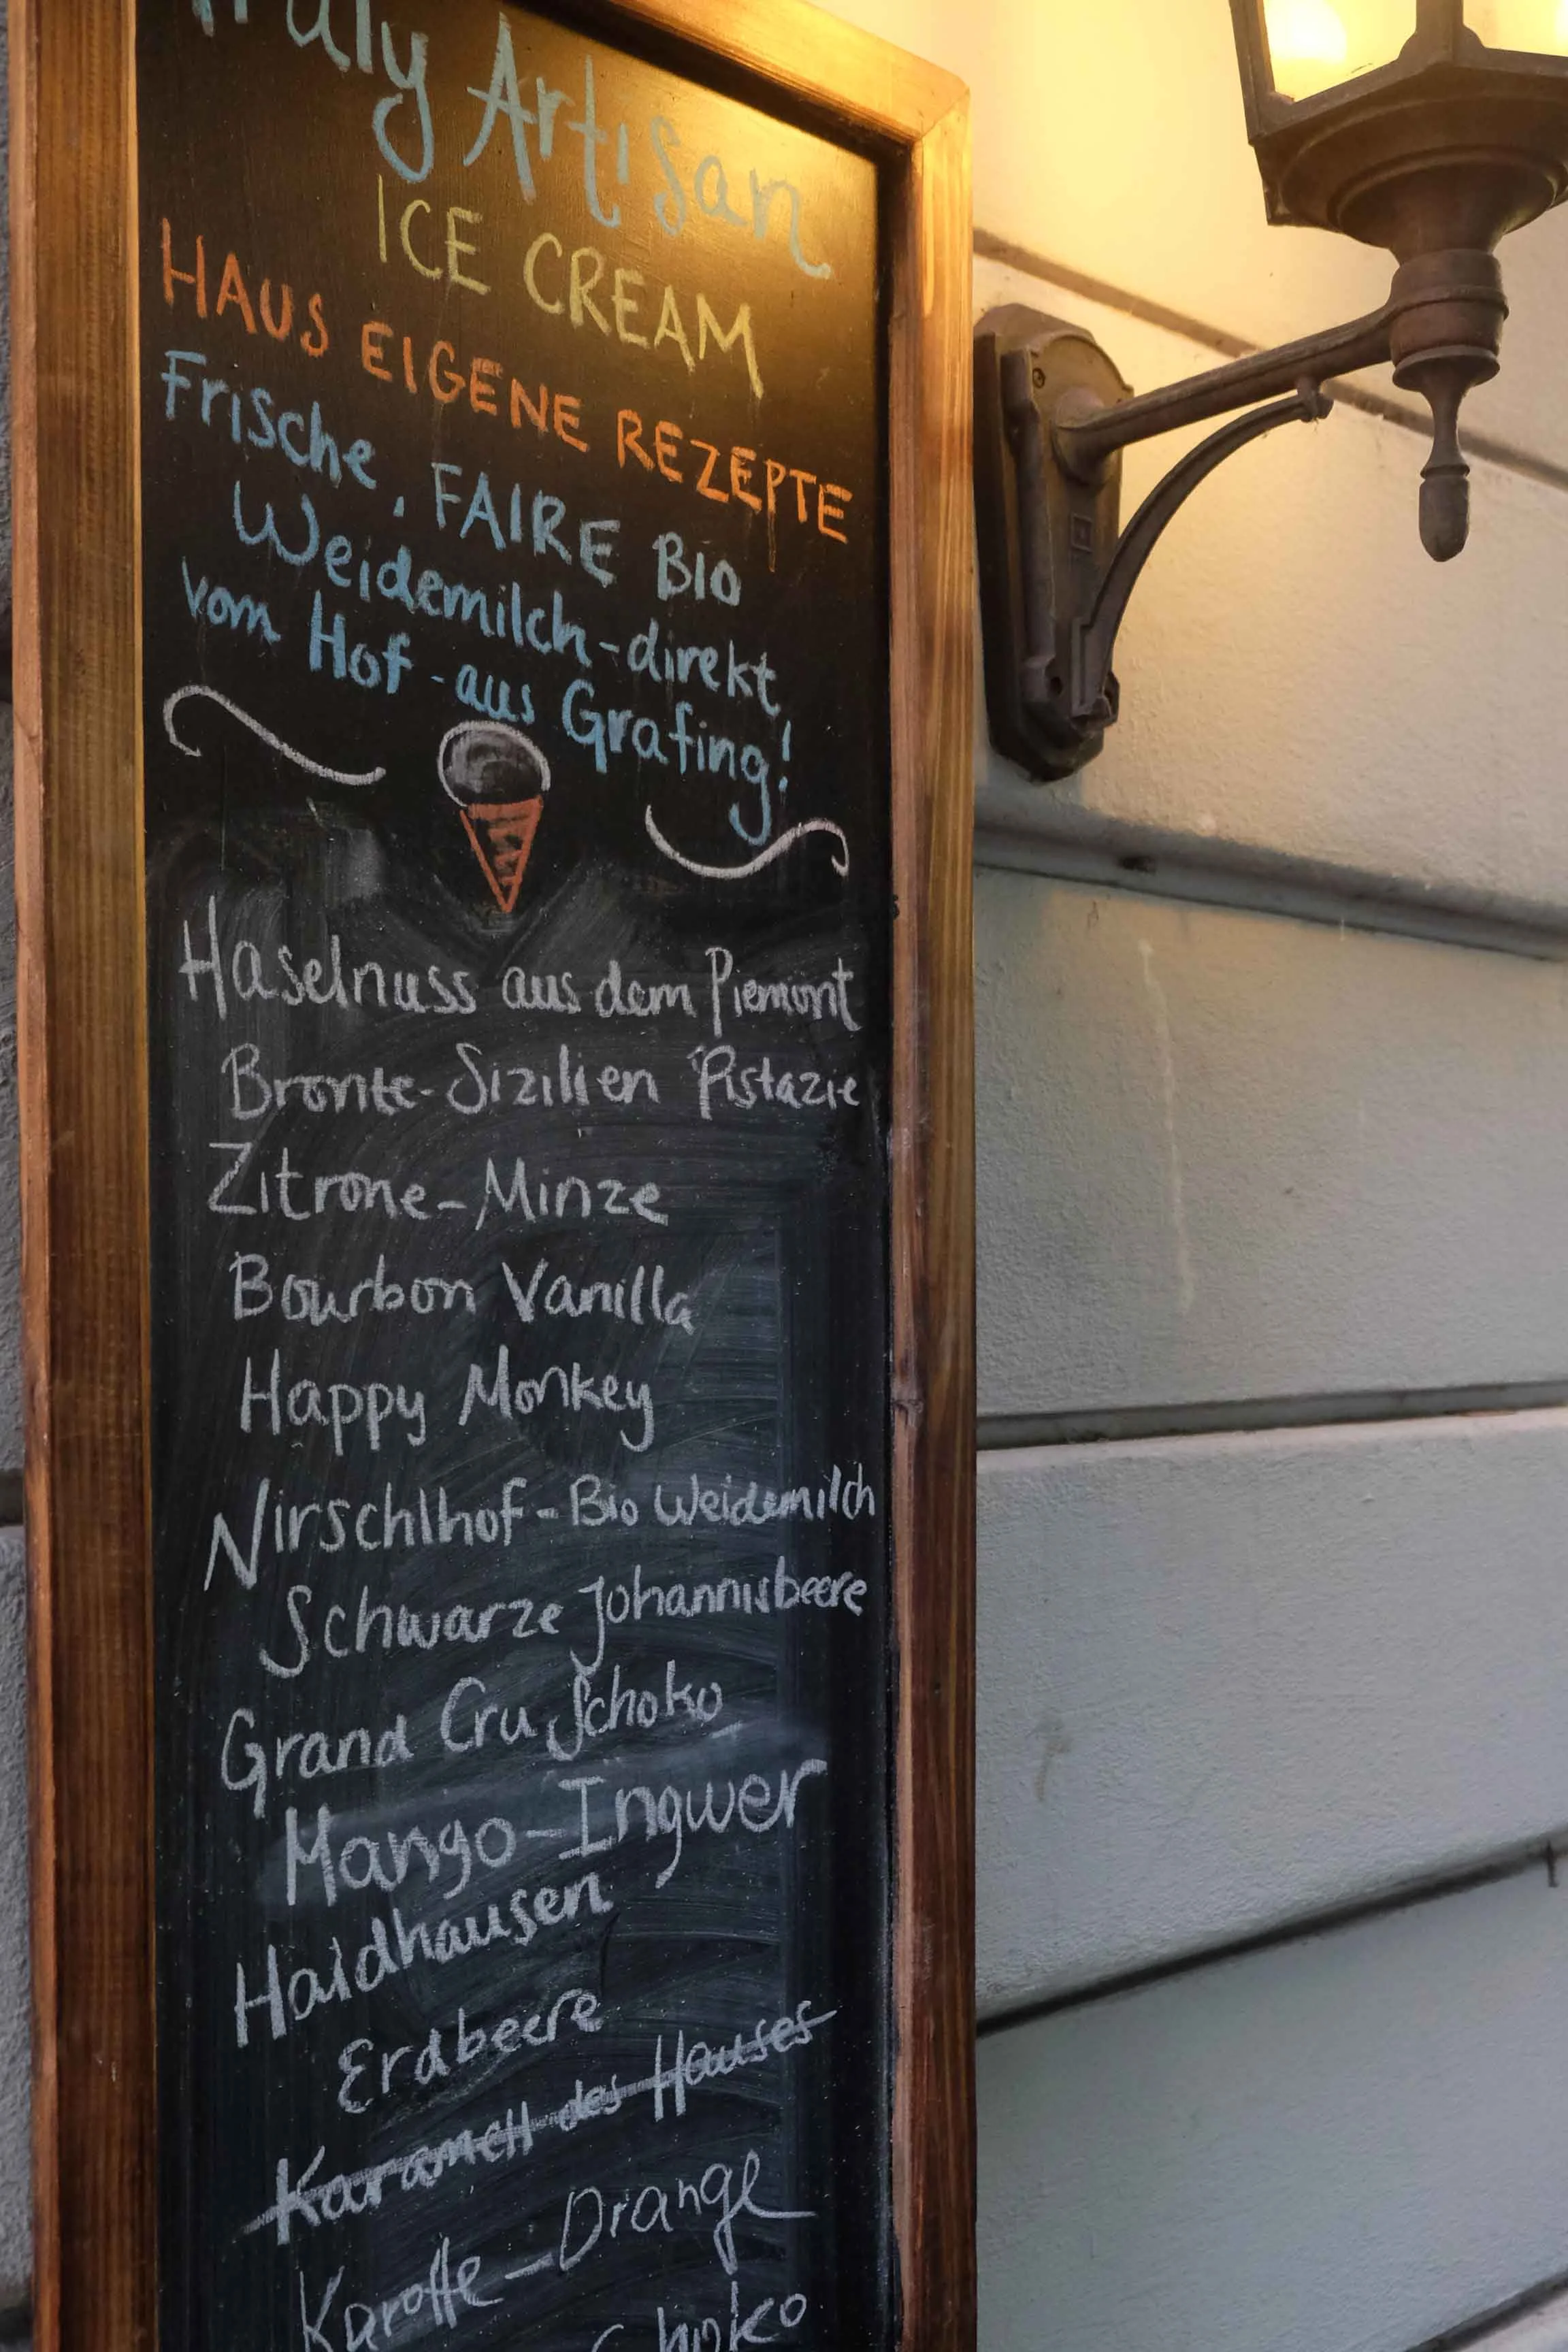 Truly Artisan
ICE CREAM
HAUS EIGENE REZEPTE
Frische, FAIRE BIO
Weidemilch-direkt
vom Hof - aus Grafing!
Haselnuss aus dem Piemont
Bronte-Sizilien Pistazie
Zitrone-Minze
Bourbon Vanilla
Happy Monkey
Nirschlhof-Bio Weidemilch
Schwarze Johannisbeere
Grand Cru Schoko
Mango-Ingwer
Haidhausen
Erdbeere
Karamell des Hauses
Karotte-Orange
Schoko